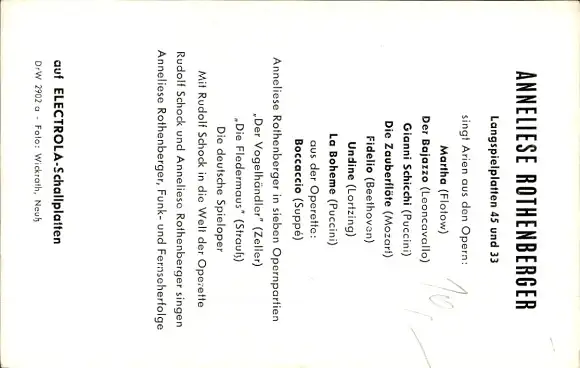 ANNELIESE ROTHENBERGER
Langspielplatten 45 und 33
singt Arien aus den Opern:
Martha (Flotow)
Der Bajazzo (Leoncavallo)
Gianni Schicchi (Puccini)
Die Zauberflöte (Mozart)
Fidelio (Beethoven)
Undine (Lortzing)
La Boheme (Puccini)
aus der Operette:
Boccaccio (Suppé)
Anneliese Rothenberger in sieben Opernpartien
„Der Vogelhändler" (Zeller)
„Die Fledermaus" (Strauß)
Die deutsche Spieloper
Mit Rudolf Schock in die Welt der Operette
Rudolf Schock und Anneliese Rothenberger singen
Anneliese Rothenberger, Funk- und Fernseherfolge
auf ELECTROLA-Schallplatten
DrW 2902 a - Foto: Wickrath, Neuß